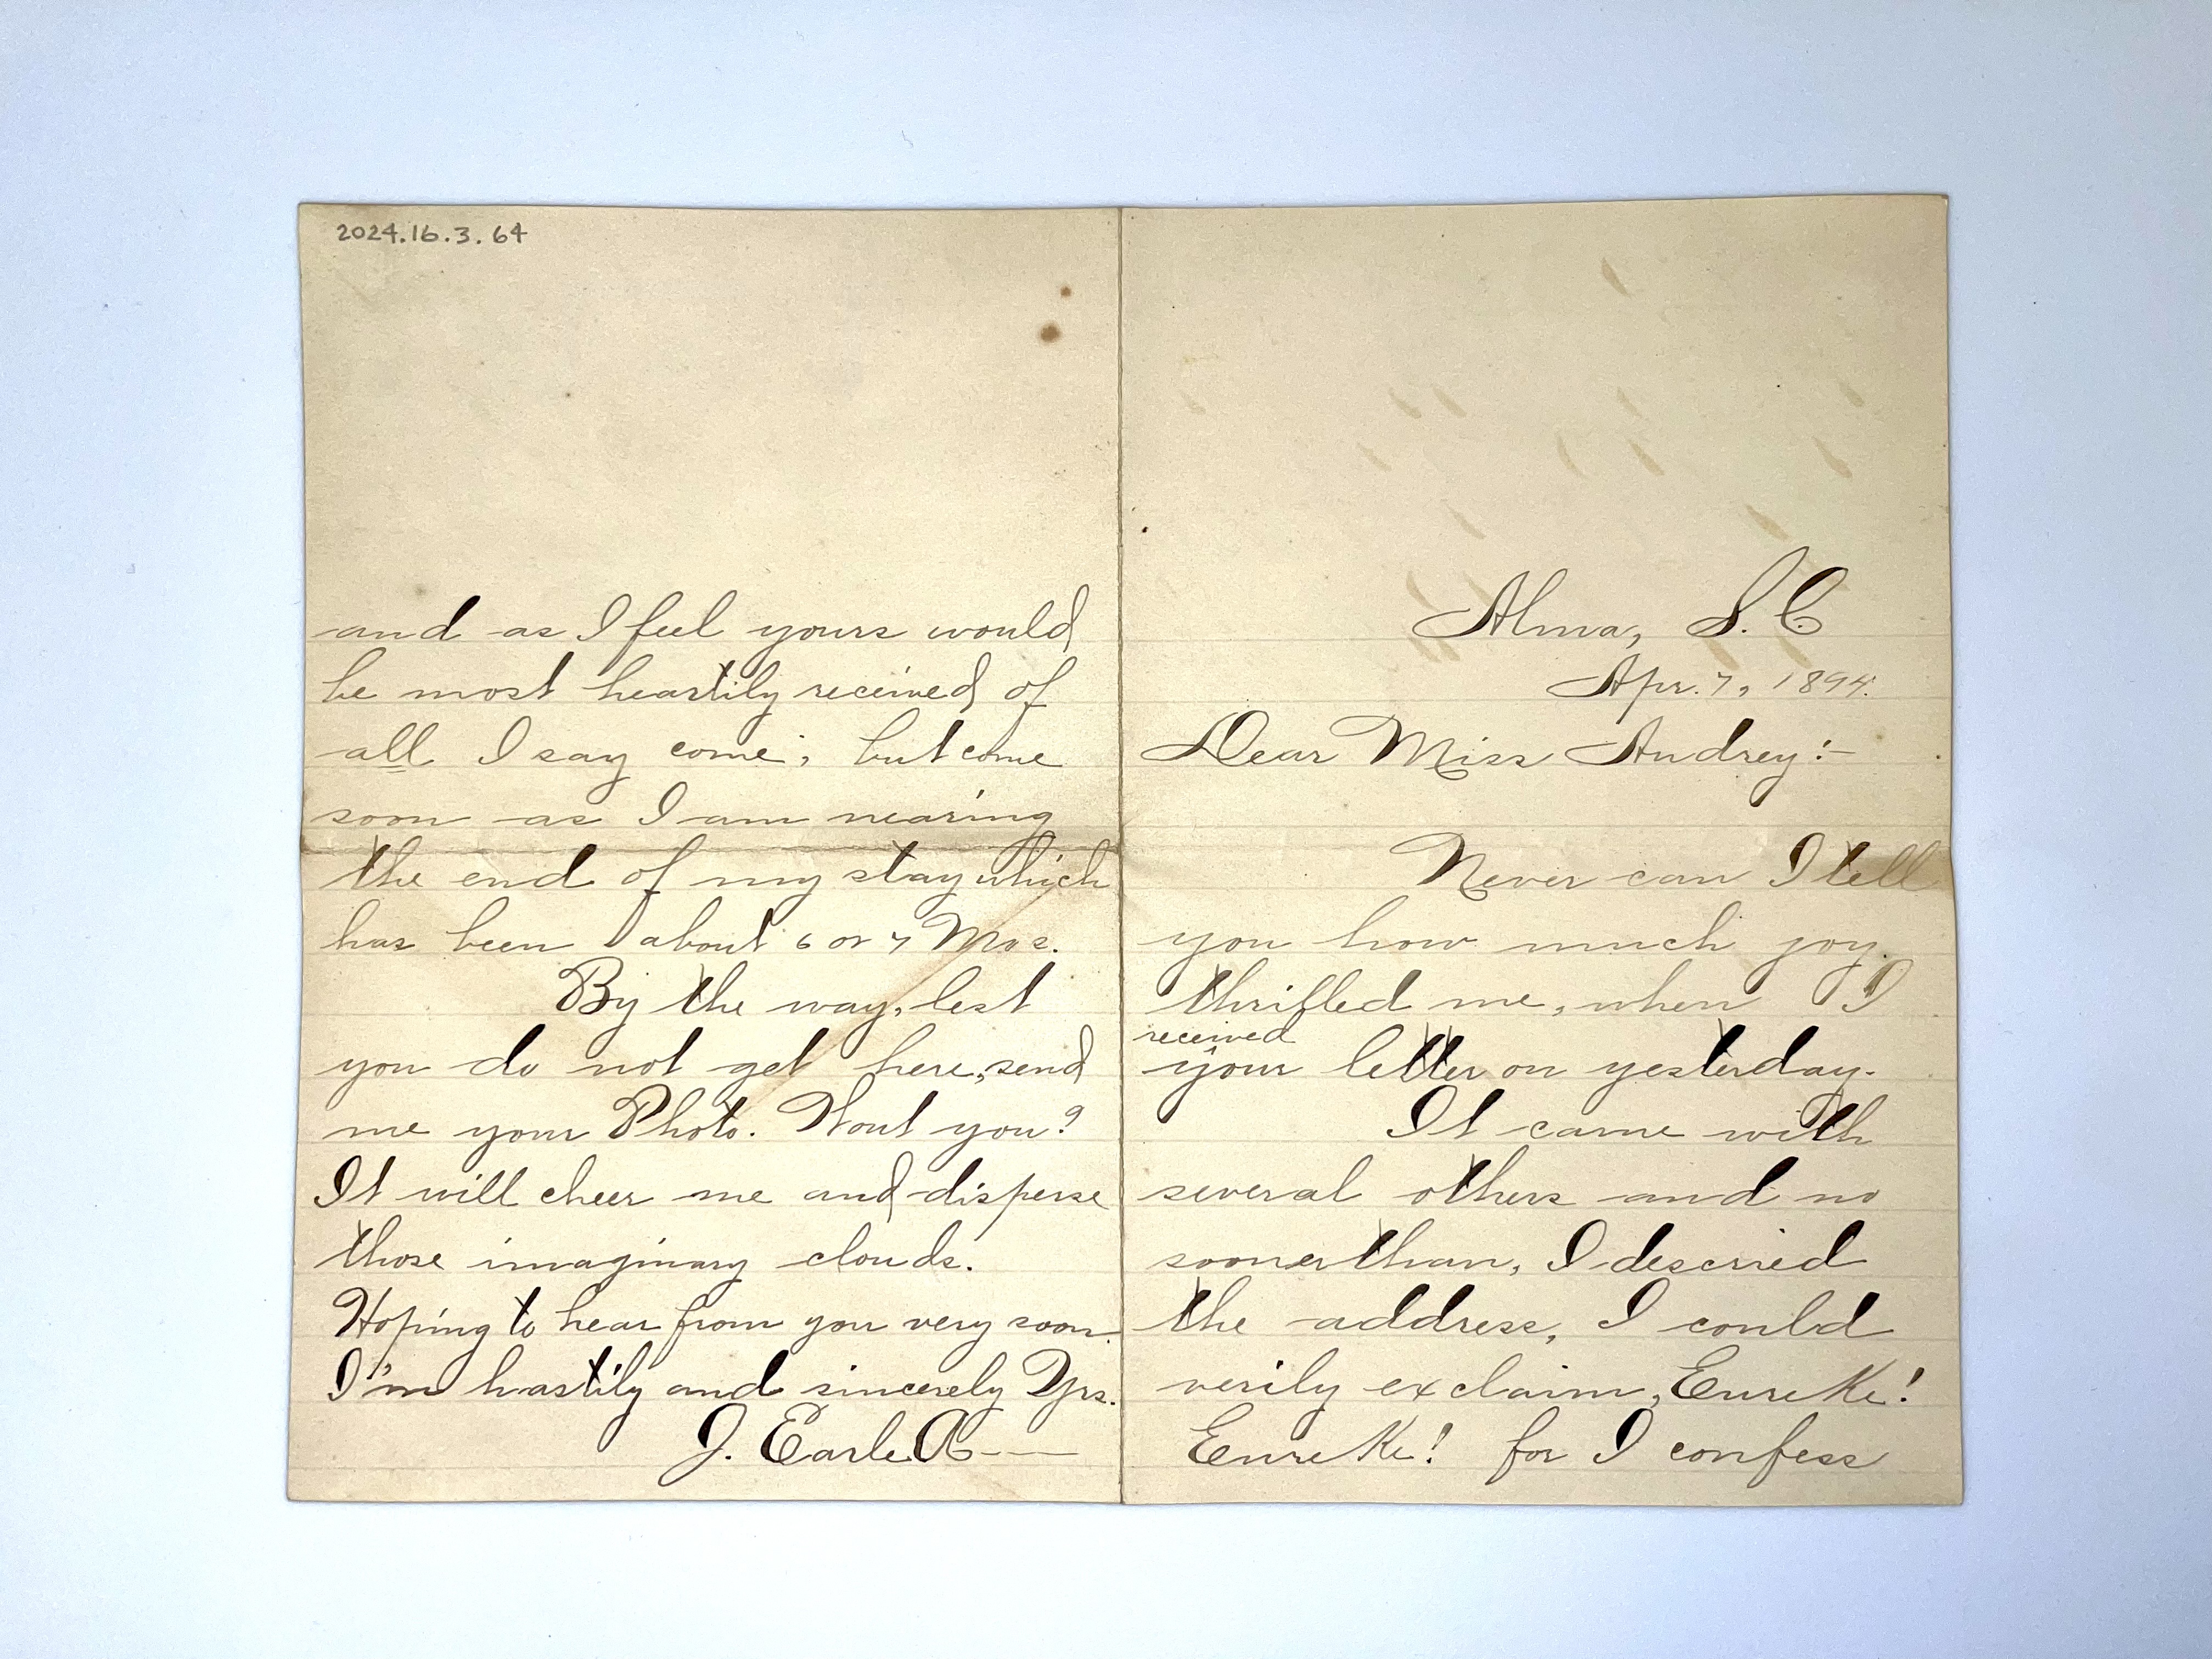 2024.16.3.64
and as I feel yours would
be most heartily received of
all I say come, but come
soon as I am nearing
the end of my stay which
has been about 6 or 7 Mos.
By the way, lest
you do not get here, send
me your Photo. Wont you?
It will cheer me and disperse
those imaginary clouds.
Hoping to hear from you very soon
I'm hastily and sincerely Yrs.
J. Earle A——
Alma, S.C
Apr. 7, 1894.
Dear Miss Audrey:-
Never can I tell
you how much joy
thrilled me, when I
received
your letter on yesterday.
It came with
several others and no
sooner than, I descried
the address, I could
verily exclaim, Eureke!
Eureke! for I confess